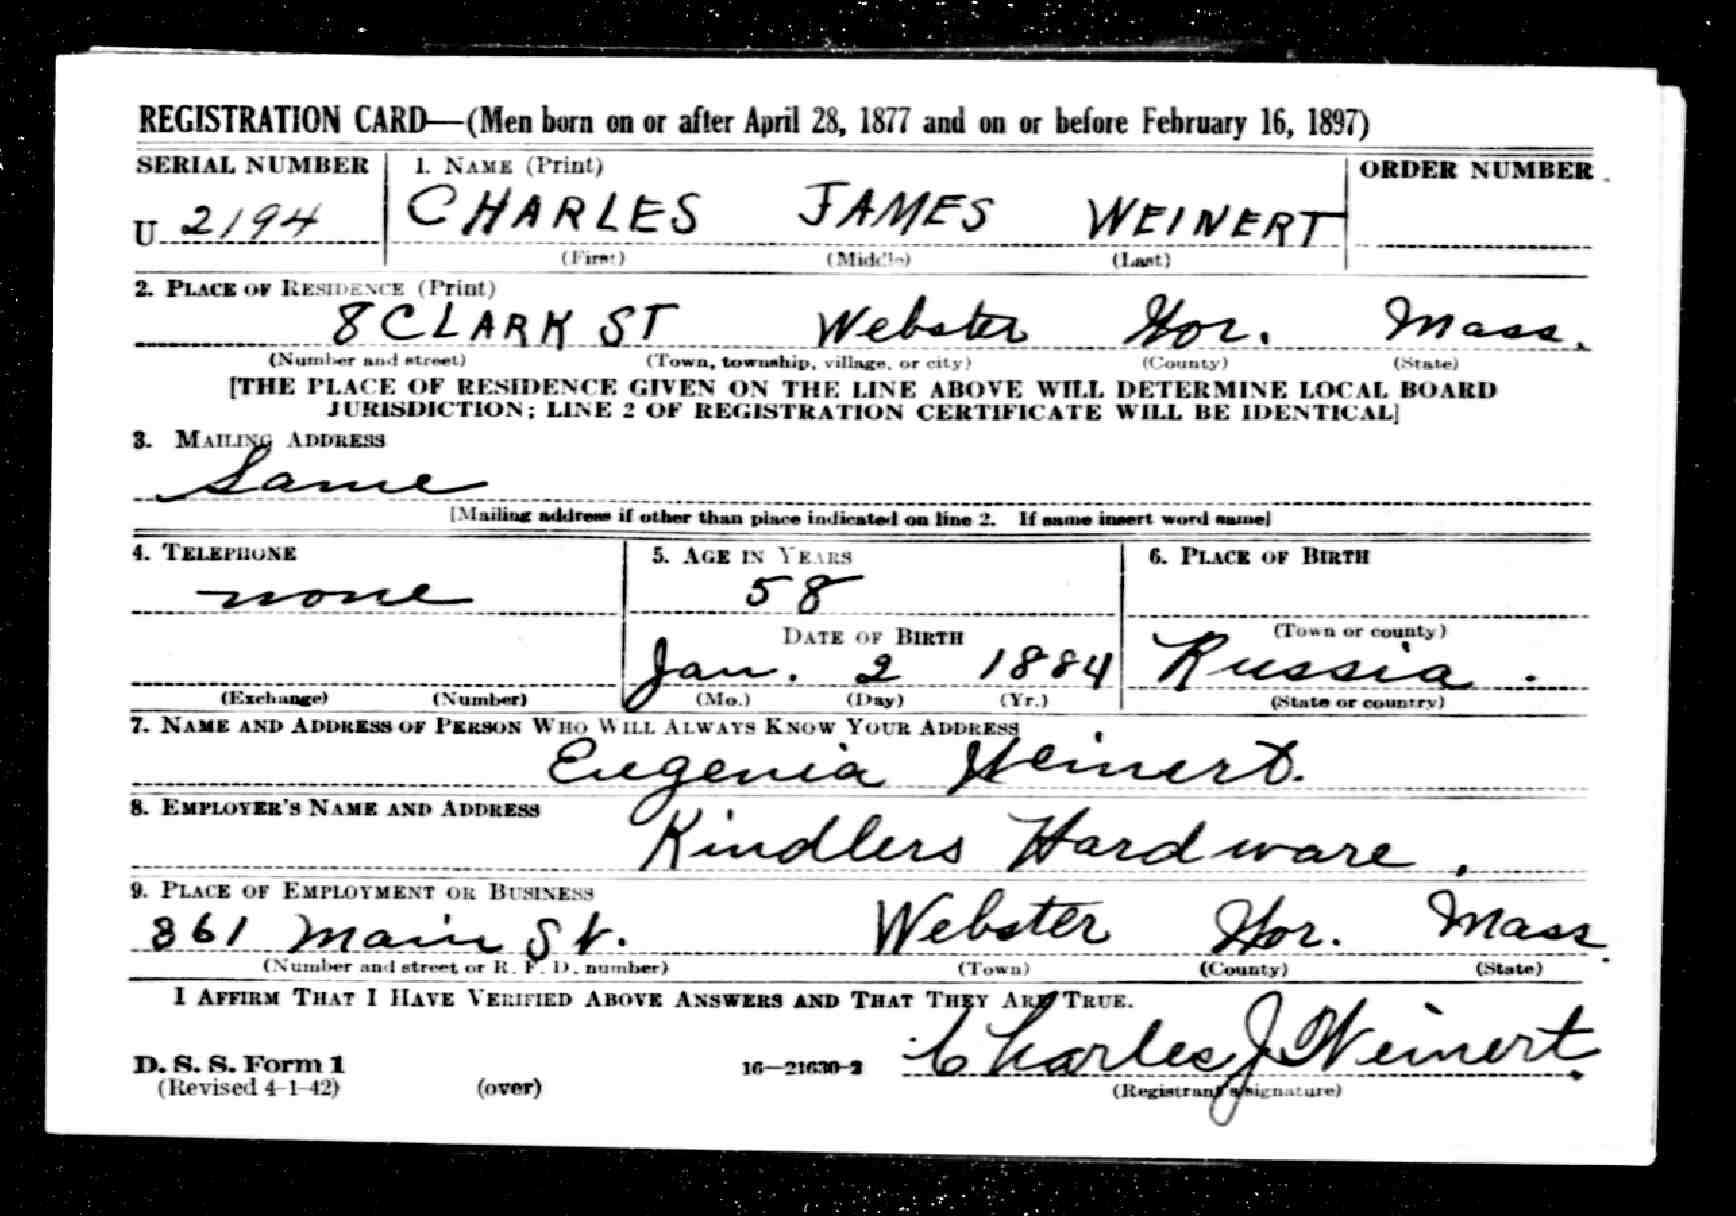 REGISTRATION CARD—(Men born on or after April 28, 1877 and on or before February 16, 1897)
SERIAL NUMBER 1. NAME (Print) ORDER NUMBER
U 2194 CHARLES JAMES WEINERT
(First) (Middle) (Last)
2. PLACE OF RESIDENCE (Print)
8 CLARK ST Webster Wor. Mass.
(Number and street) (Town, township, village, or city) (County) (State)
[THE PLACE OF RESIDENCE GIVEN ON THE LINE ABOVE WILL DETERMINE LOCAL BOARD
JURISDICTION; LINE 2 OF REGISTRATION CERTIFICATE WILL BE IDENTICAL]
3. MAILING ADDRESS
Same
[Mailing address if other than place indicated on line 2. If same insert word same]
4. TELEPHONE 5. AGE IN YEARS 6. PLACE OF BIRTH
none 58
DATE OF BIRTH (Town or county)
Jan. 2 1884 Russia.
(Exchange) (Number) (Mo.) (Day) (Yr.) (State or country)
7. NAME AND ADDRESS OF PERSON WHO WILL ALWAYS KNOW YOUR ADDRESS
Eugenia Weinert.
8. EMPLOYER'S NAME AND ADDRESS
Kindlers Hardware.
9. PLACE OF EMPLOYMENT OR BUSINESS
361 Main St. Webster Wor. Mass.
(Number and street or R. F. D. number) (Town) (County) (State)
I AFFIRM THAT I HAVE VERIFIED ABOVE ANSWERS AND THAT THEY ARE TRUE.
Charles J Weinert.
D. S. S. Form 1 16—21630-2
(Revised 4-1-42) (over) (Registrant's signature)